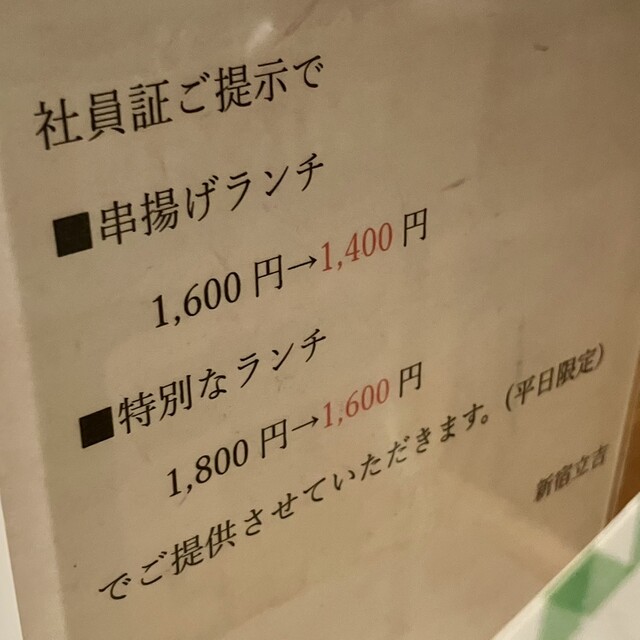 社員証ご提示で
■串揚げランチ
1,600円→1,400円
■特別なランチ
1,800円→1,600円
でご提供させていただきます。(平日限定)
新宿立吉